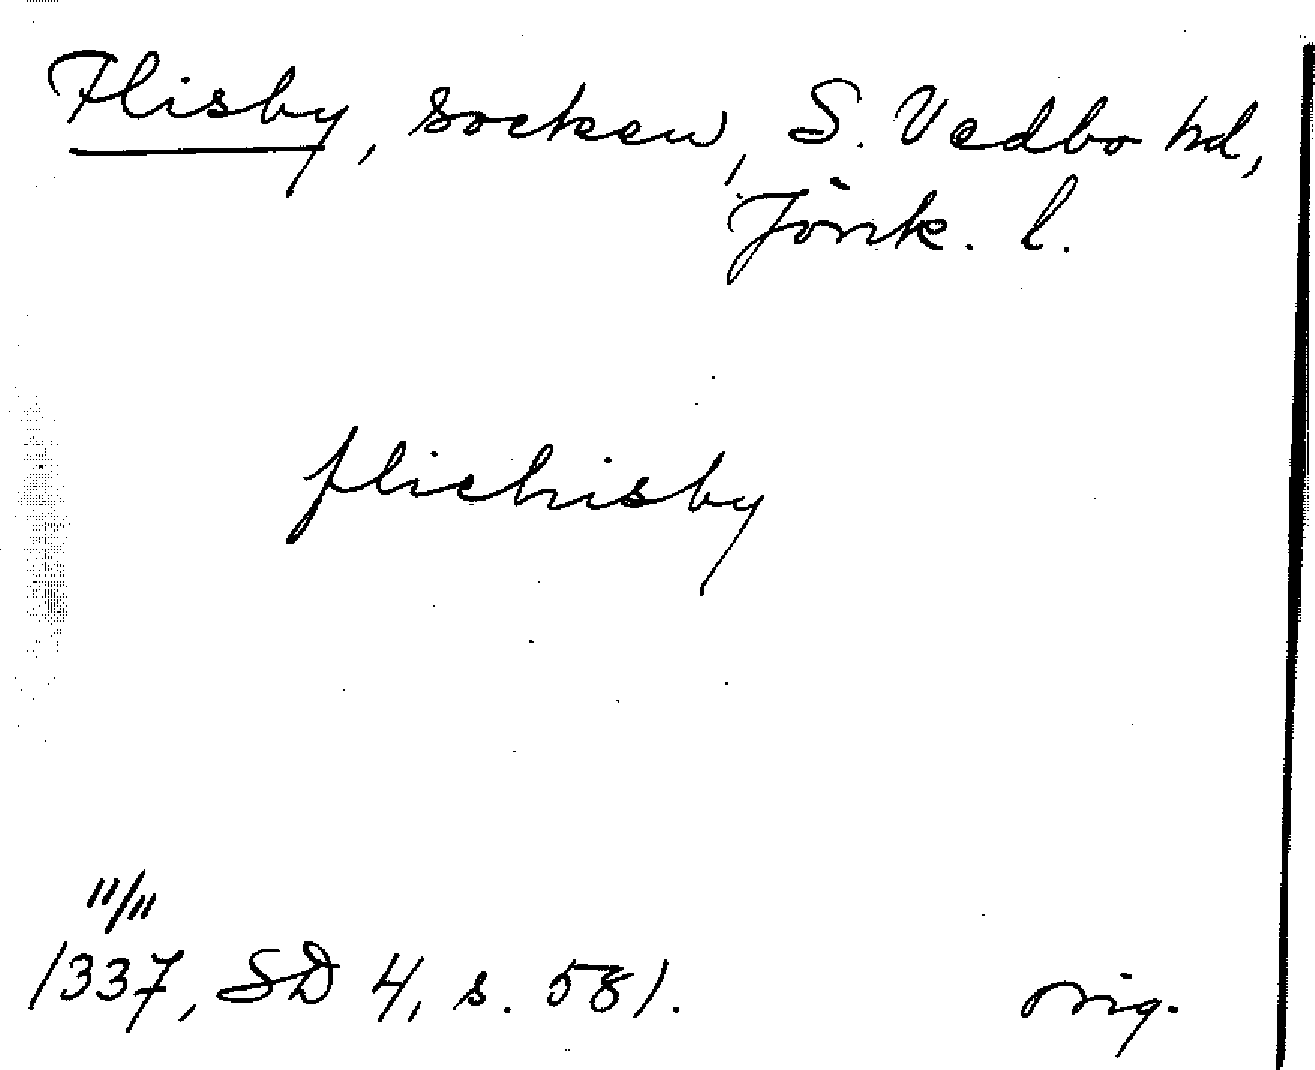 Flisby, socken, S. Vedbo hd,
Jönk. l.
flichisby
11/11
1337, SD 4, s. 581.
orig.